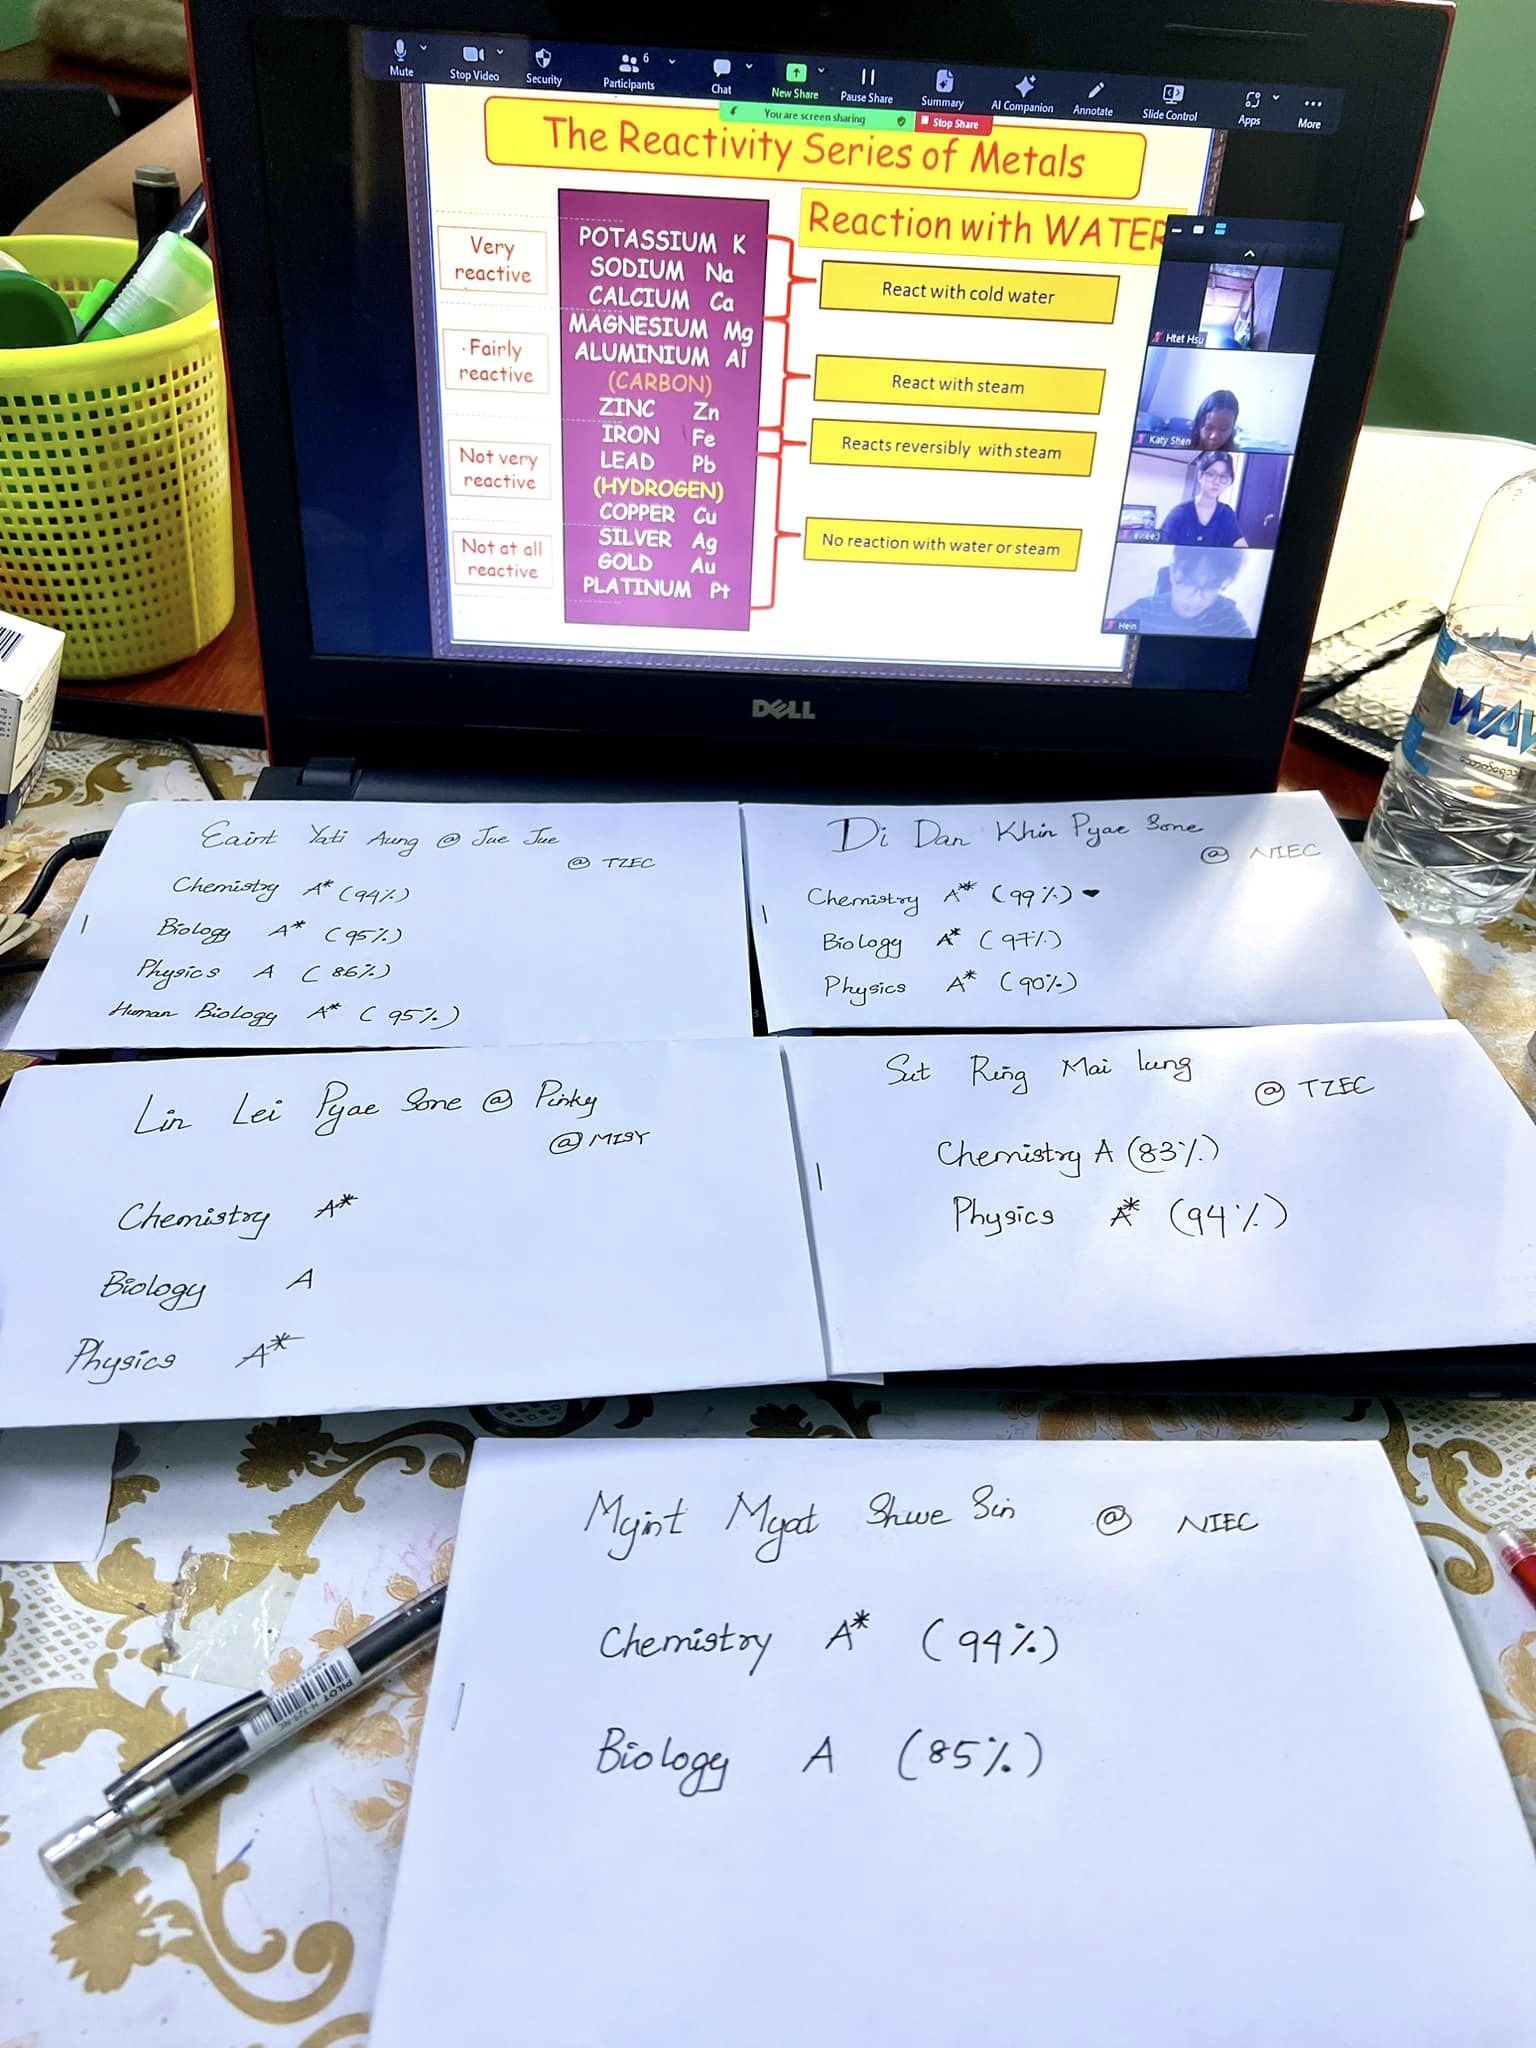 Mute
Stop Video
Security
Participants
6
Chat
New Share
Pause Share
Summary
AI Companion
Annotate
Slide Control
Apps
More
You are screen sharing
Stop Share
The Reactivity Series of Metals
Reaction with WATER
Very reactive
Fairly reactive
Not very reactive
Not at all reactive
POTASSIUM K
SODIUM Na
CALCIUM Ca
MAGNESIUM Mg
ALUMINIUM Al
(CARBON)
ZINC Zn
IRON Fe
LEAD Pb
(HYDROGEN)
COPPER Cu
SILVER Ag
GOLD Au
PLATINUM Pt
React with cold water
React with steam
Reacts reversibly with steam
No reaction with water or steam
Htet Hsu
Katy Shen
Hein
DELL
WAV
Eaint Yati Aung @ Jue Jue
@ TZEC
Chemistry A* (94%)
Biology A* (95%)
Physics A (86%)
Human Biology A* (95%)
Di Dan Khin Pyae Sone
@ NIEC
Chemistry A* (99%)
Biology A* (97%)
Physics A* (90%)
Lin Lei Pyae Sone @ Pinky
@ MISY
Chemistry A*
Biology A
Physics A*
Sut Ring Mai Lung
@ TZEC
Chemistry A (83%)
Physics A* (94%)
Myint Myat Shwe Sin @ NIEC
Chemistry A* (94%)
Biology A (85%)
PILOT